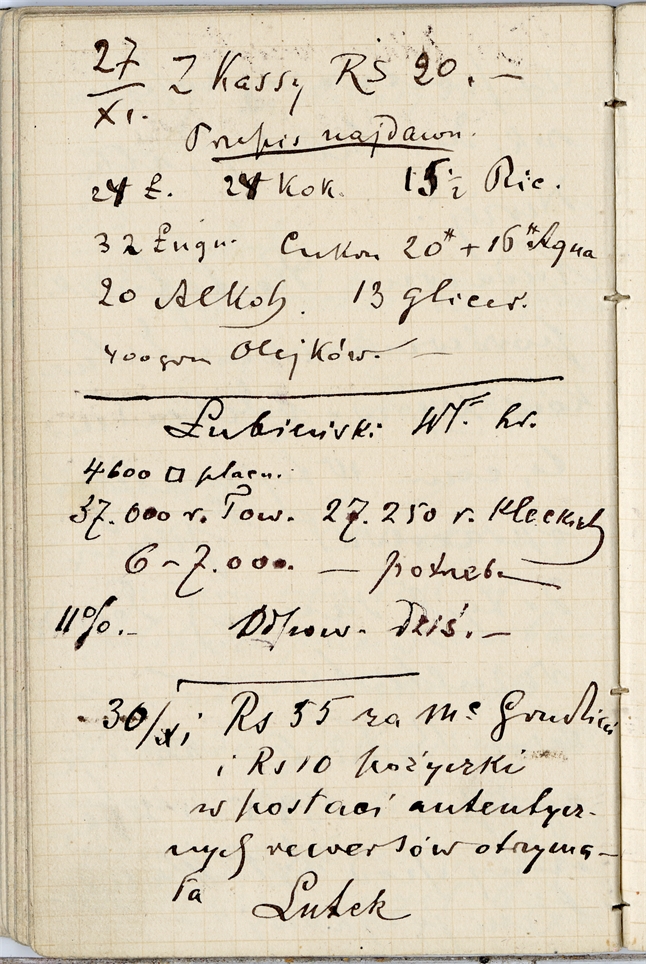 27/XI. Z Kassy RS 20.—
Przepis najdawn.
24 Ł. 24 Kok. 15½ Ric.
32 Ługu. Cukru 20# + 16# Aqua
20 Alkoh. 13 glicer.
400 grm Olejków.—
Łubieński Wł. hr.
4600 □ placu.
37.000 r. Tow. 27.250 r. Kleckich
6–7.000. — potrzeb.
11%.– Odpow. dziś.—
30/XI Rs 55 za mc Grudzień
i Rs 10 pożyczki
w postaci autentycz-
nych rewersów otrzyma-
ła
Lutek